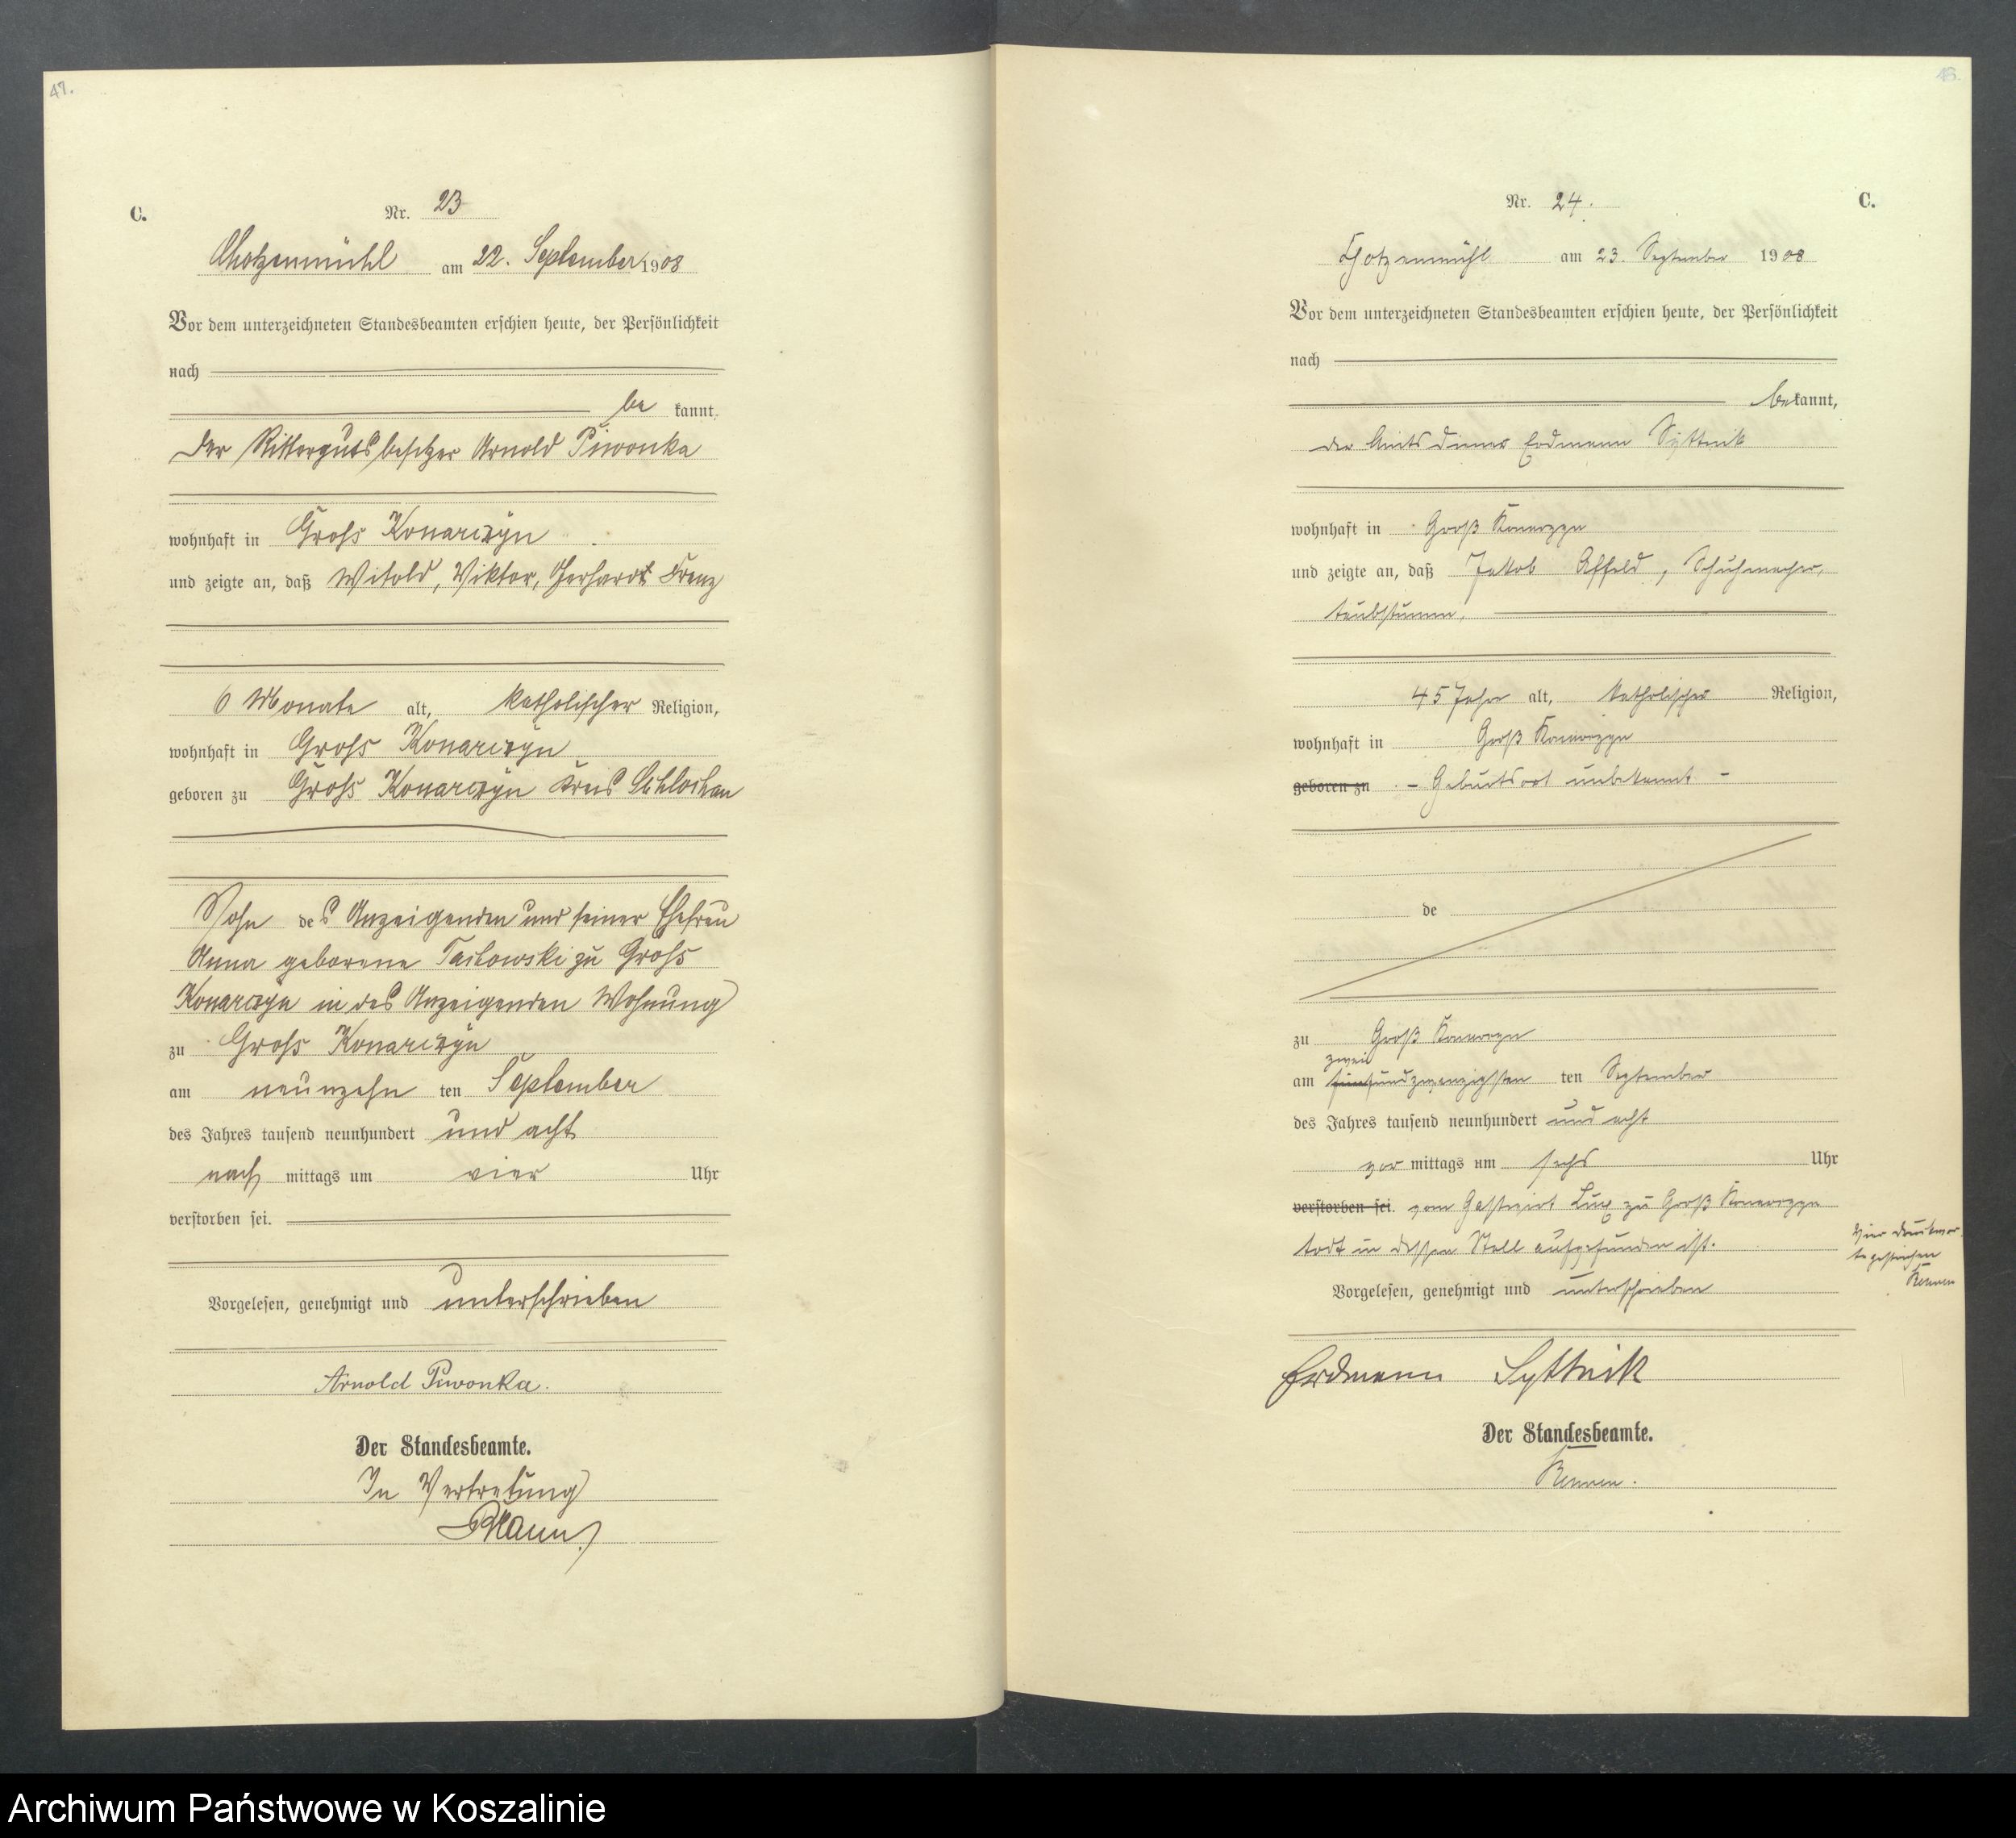 47.
C.
Nr. 23
Chotzenmühl am 22. September 1908
Vor dem unterzeichneten Standesbeamten erschien heute, der Persönlichkeit
nach
be kannt,
der Rittergutsbesitzer Arnold Piwonka
wohnhaft in Groß Konarczyn
und zeigte an, daß Witold, Viktor, Gerhardt Franz
6 Monate alt, katholischer Religion,
wohnhaft in Groß Konarczyn
geboren zu Groß Konarczyn Kreis Schlochau
Sohn des Anzeigenden und seiner Ehefrau
Anna geborene zu Groß
Konarczyn in des Anzeigenden Wohnung
zu Groß Konarczyn
am neunzehn ten September
des Jahres tausend neunhundert und acht
nach mittags um vier Uhr
verstorben sei.
Vorgelesen, genehmigt und unterschrieben
Arnold Piwonka.
Der Standesbeamte.
In Vertretung
C.
Nr. 24.
Chotzenmühl am 23. September 1908
Vor dem unterzeichneten Standesbeamten erschien heute, der Persönlichkeit
nach
bekannt,
der Amtsdiener Erdmann Syttnik
wohnhaft in Groß Konarzyn
und zeigte an, daß Jakob Affeld, Schuhmacher,
taubstumm,
45 Jahr alt, katholischer Religion,
wohnhaft in Groß Konarzyn
geboren zu - Geburtsort unbekannt -
de
zu Groß Konarzyn
zwei
am fünfundzwanzigsten ten September
des Jahres tausend neunhundert und acht
vor mittags um sechs Uhr
verstorben sei. vom Gastwirt zu Groß Konarzyn
todt in dessen Stall aufgefunden ist.
Vier Druckwor-
te gestrichen
Vorgelesen, genehmigt und unterschrieben
Erdmann Syttnik
Der Standesbeamte.
Archiwum Państwowe w Koszalinie